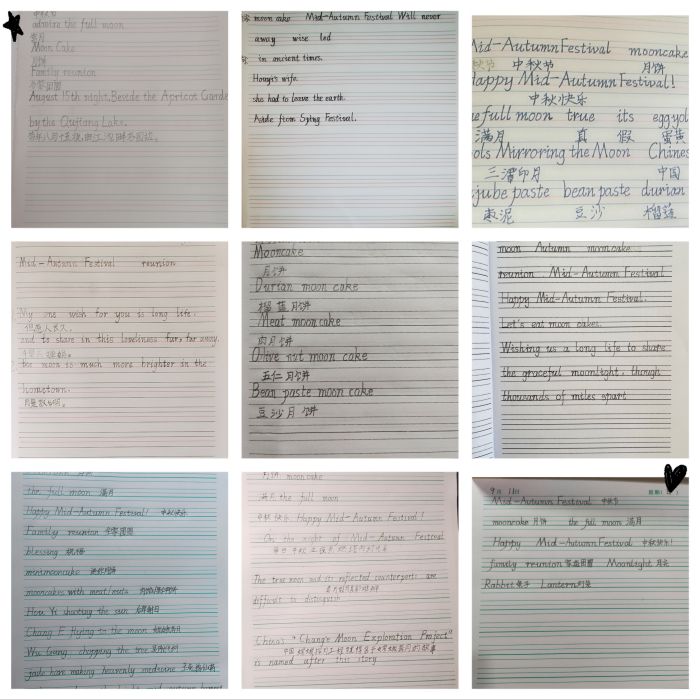 admire the full moon
赏月
Moon Cake
月饼
Family reunion
August 15th night, Beside the Apricot Garde
by the Qujiang Lake.
moon cake Mid-Autumn Festival Will never
away wise led
in ancient times.
Houyi's wife.
she had to leave the earth.
Aside from Sping Festival.
Mid-Autumn Festival mooncake
中秋节 月饼
Happy Mid-Autumn Festival!
中秋快乐
full moon true its eggyol
满月 真 假 蛋黄
ols Mirroring the Moon Chines
三潭印月 中国
jube paste bean paste durian
枣泥 豆沙 榴莲
Mid-Autumn Festival reunion
My one wish for you is long life.
但愿人长久,
and to share in this loveliness far, far away.
千里共婵娟。
the moon is much more brighter in the
hometown.
Mooncake
月饼
Durian moon cake
月饼
Meat moon cake
肉月饼
Olive nut moon cake
五仁月饼
Bean paste moon cake
豆沙月饼
moon Autumn mooncake
reunion Mid-Autumn Festival
Happy Mid-Autumn Festival.
Let's eat moon cakes.
Wishing us a long life to share
the graceful moonlight, though
thousands of miles apart
the full moon 满月
Happy Mid-Autumn Festival! 中秋快乐
Family reunion 全家团圆
blessing 祝福
minimooncake 迷你月饼
mooncakes with meat/nuts
Hou Yi shooting the sun 后羿射日
Chang E flying to the moon 嫦娥奔月
Wu Gang chopping the tree
jade hare making heavenly medicine
月饼 mooncake
满月 the full moon
中秋快乐 Happy Mid-Autumn Festival!
On the night of Mid-Autumn Festival
The true moon and its reflected counterparts are
difficult to distinguish
China's "Chang'e Moon Exploration Project"
中国嫦娥探月工程
is named after this story
9月 11日
Mid-Autumn Festival 中秋节
mooncake 月饼 the full moon 满月
Happy Mid-Autumn Festival 中秋快乐!
family reunion 家庭团圆 Moonlight 月光
Rabbit 兔子 Lantern 灯笼